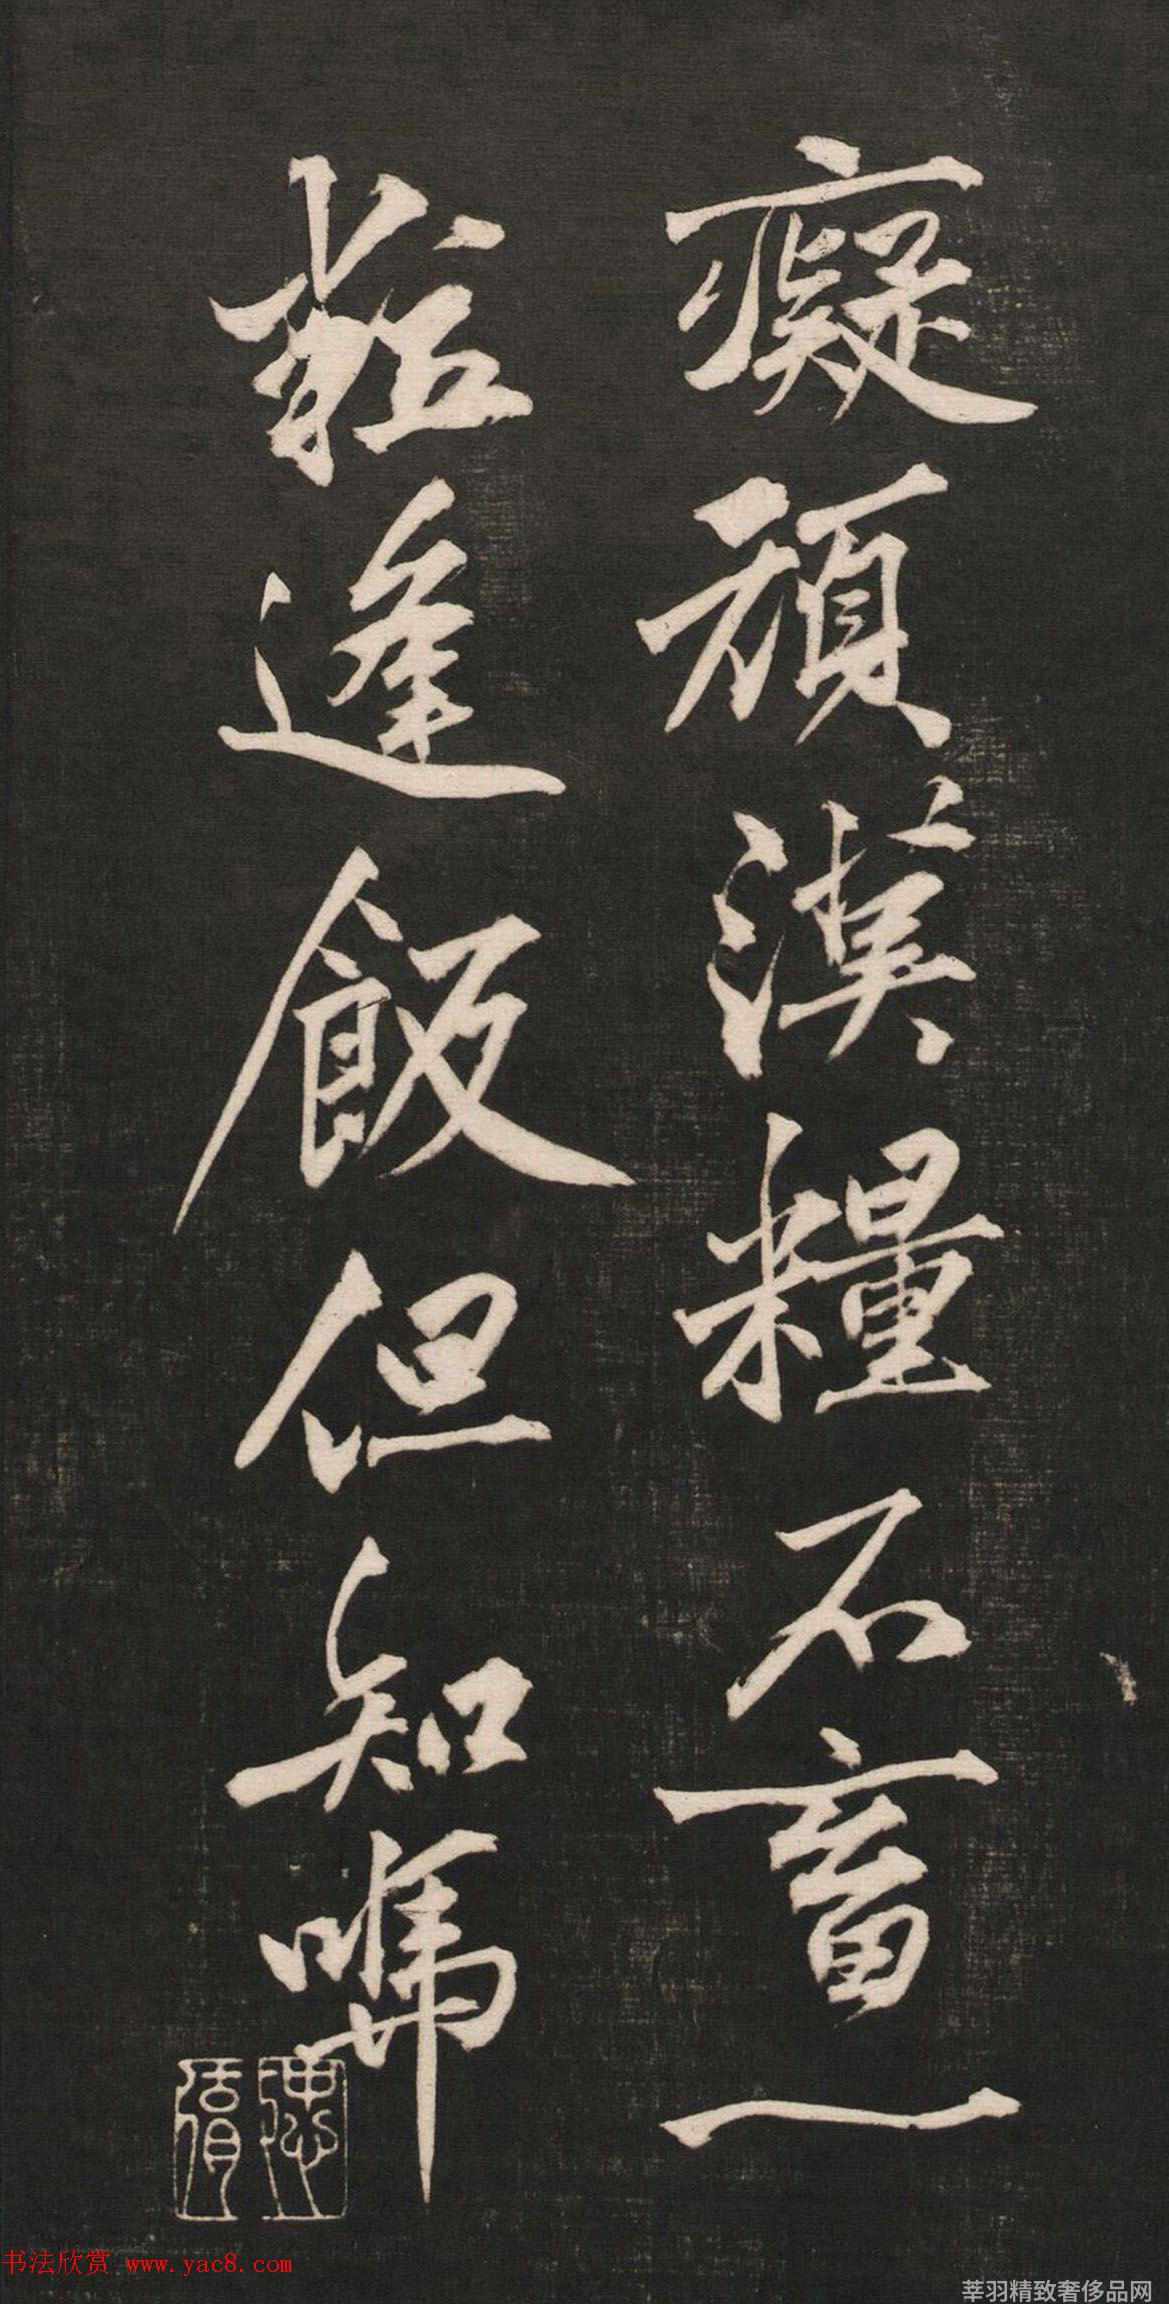 癡頑漢糧不畜一
粒逢飯但知
书法欣赏 www.yac8.com
莘羽精致奢侈品网